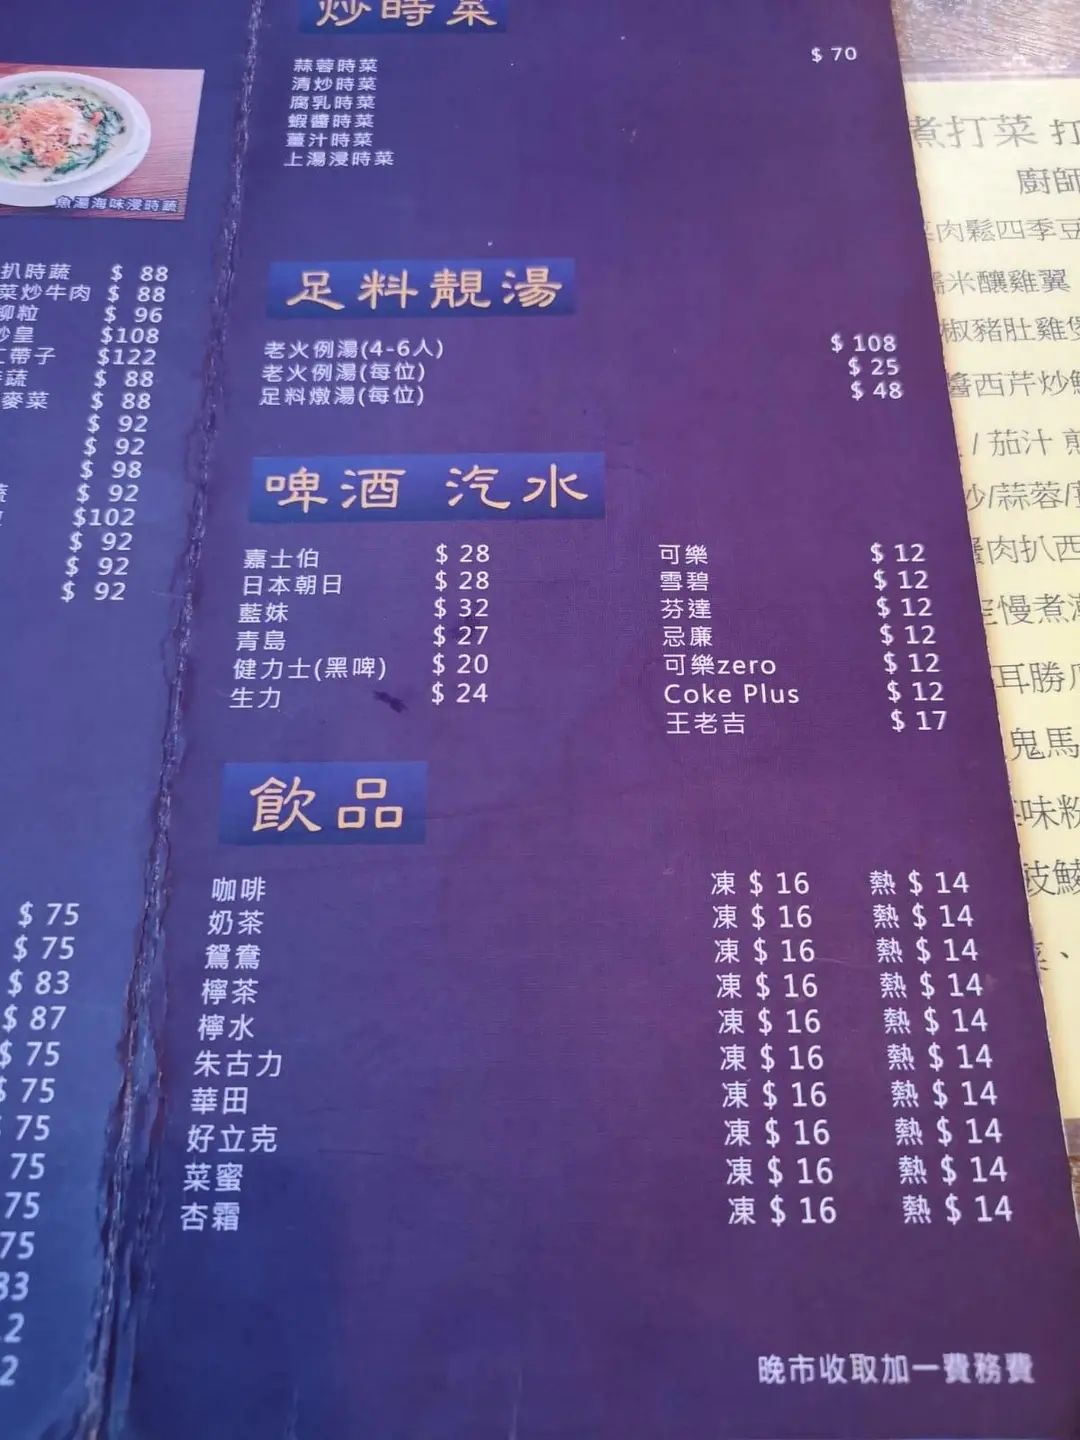 炒時菜
蒜蓉時菜 $ 70
清炒時菜
腐乳時菜
蝦醬時菜
薑汁時菜
上湯浸時菜
魚湯海味浸時蔬
扒時蔬 $ 88
菜炒牛肉 $ 88
柳粒 $ 96
炒皇 $108
帶子 $122
蔬 $ 88
麥菜 $ 88
$ 92
$ 92
$ 98
$ 92
$102
$ 92
$ 92
$ 92
$ 75
$ 75
$ 83
$ 87
$ 75
$ 75
75
75
75
75
83
2
2
足料靚湯
老火例湯(4-6人) $ 108
老火例湯(每位) $ 25
足料燉湯(每位) $ 48
啤酒 汽水
嘉士伯 $ 28 可樂 $ 12
日本朝日 $ 28 雪碧 $ 12
藍妹 $ 32 芬達 $ 12
青島 $ 27 忌廉 $ 12
健力士(黑啤) $ 20 可樂zero $ 12
生力 $ 24 Coke Plus $ 12
王老吉 $ 17
飲品
咖啡 凍 $ 16 熱 $ 14
奶茶 凍 $ 16 熱 $ 14
鴛鴦 凍 $ 16 熱 $ 14
檸茶 凍 $ 16 熱 $ 14
檸水 凍 $ 16 熱 $ 14
朱古力 凍 $ 16 熱 $ 14
華田 凍 $ 16 熱 $ 14
好立克 凍 $ 16 熱 $ 14
菜蜜 凍 $ 16 熱 $ 14
杏霜 凍 $ 16 熱 $ 14
晚市收取加一費務費
煮打菜 打
廚師
肉鬆四季豆
米釀雞翼
椒豬肚雞煲
醬西芹炒
/ 茄汁 煎
炒/蒜蓉/
肉扒西
慢煮
耳勝瓜
鬼馬
味粉
枝鯪
菜、